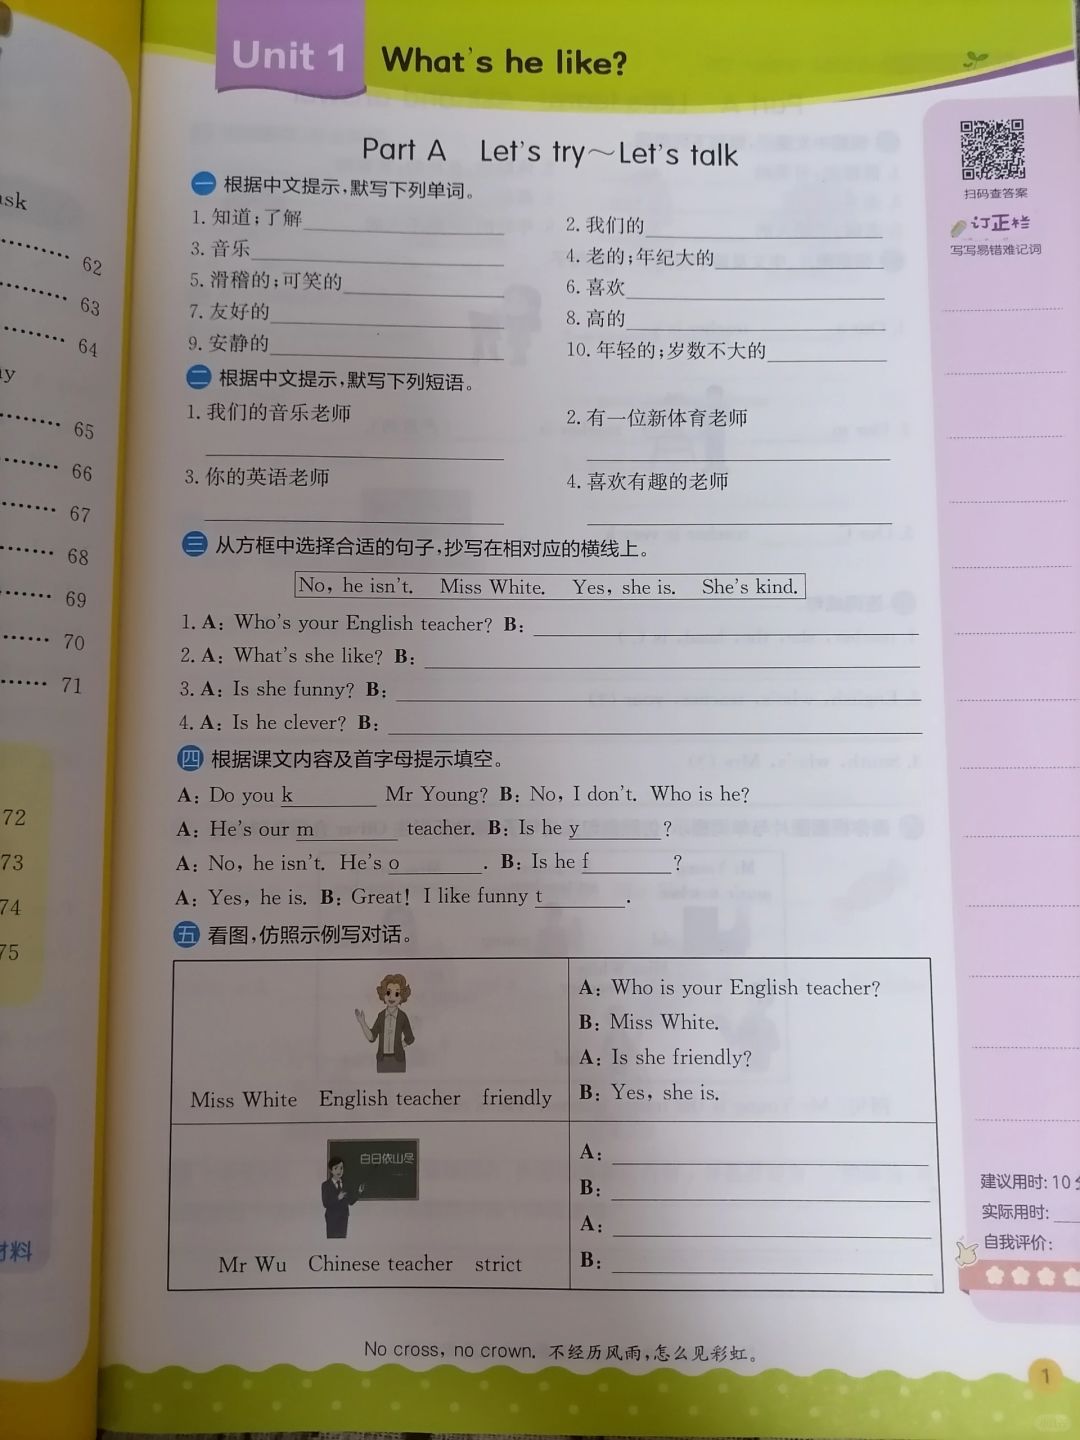 Unit 1 What's he like?
Part A Let's try～Let's talk
一 根据中文提示，默写下列单词。
1. 知道；了解
2. 我们的
3. 音乐
4. 老的；年纪大的
5. 滑稽的；可笑的
6. 喜欢
7. 友好的
8. 高的
9. 安静的
10. 年轻的；岁数不大的
二 根据中文提示，默写下列短语。
1. 我们的音乐老师
2. 有一位新体育老师
3. 你的英语老师
4. 喜欢有趣的老师
三 从方框中选择合适的句子，抄写在相对应的横线上。
No, he isn't. Miss White. Yes, she is. She's kind.
1. A: Who's your English teacher? B:
2. A: What's she like? B:
3. A: Is she funny? B:
4. A: Is he clever? B:
四 根据课文内容及首字母提示填空。
A: Do you k________ Mr Young? B: No, I don't. Who is he?
A: He's our m________ teacher. B: Is he y________?
A: No, he isn't. He's o________. B: Is he f________?
A: Yes, he is. B: Great! I like funny t________.
五 看图，仿照示例写对话。
A: Who is your English teacher?
B: Miss White.
A: Is she friendly?
B: Yes, she is.
Miss White English teacher friendly
白日依山尽
Mr Wu Chinese teacher strict
A:
B:
A:
B:
No cross, no crown. 不经历风雨，怎么见彩虹。
1
扫码查答案
订正栏
写写易错难记词
建议用时：10
实际用时：
自我评价：
ask
62
63
64
y
65
66
67
68
69
70
71
72
73
74
75
材料